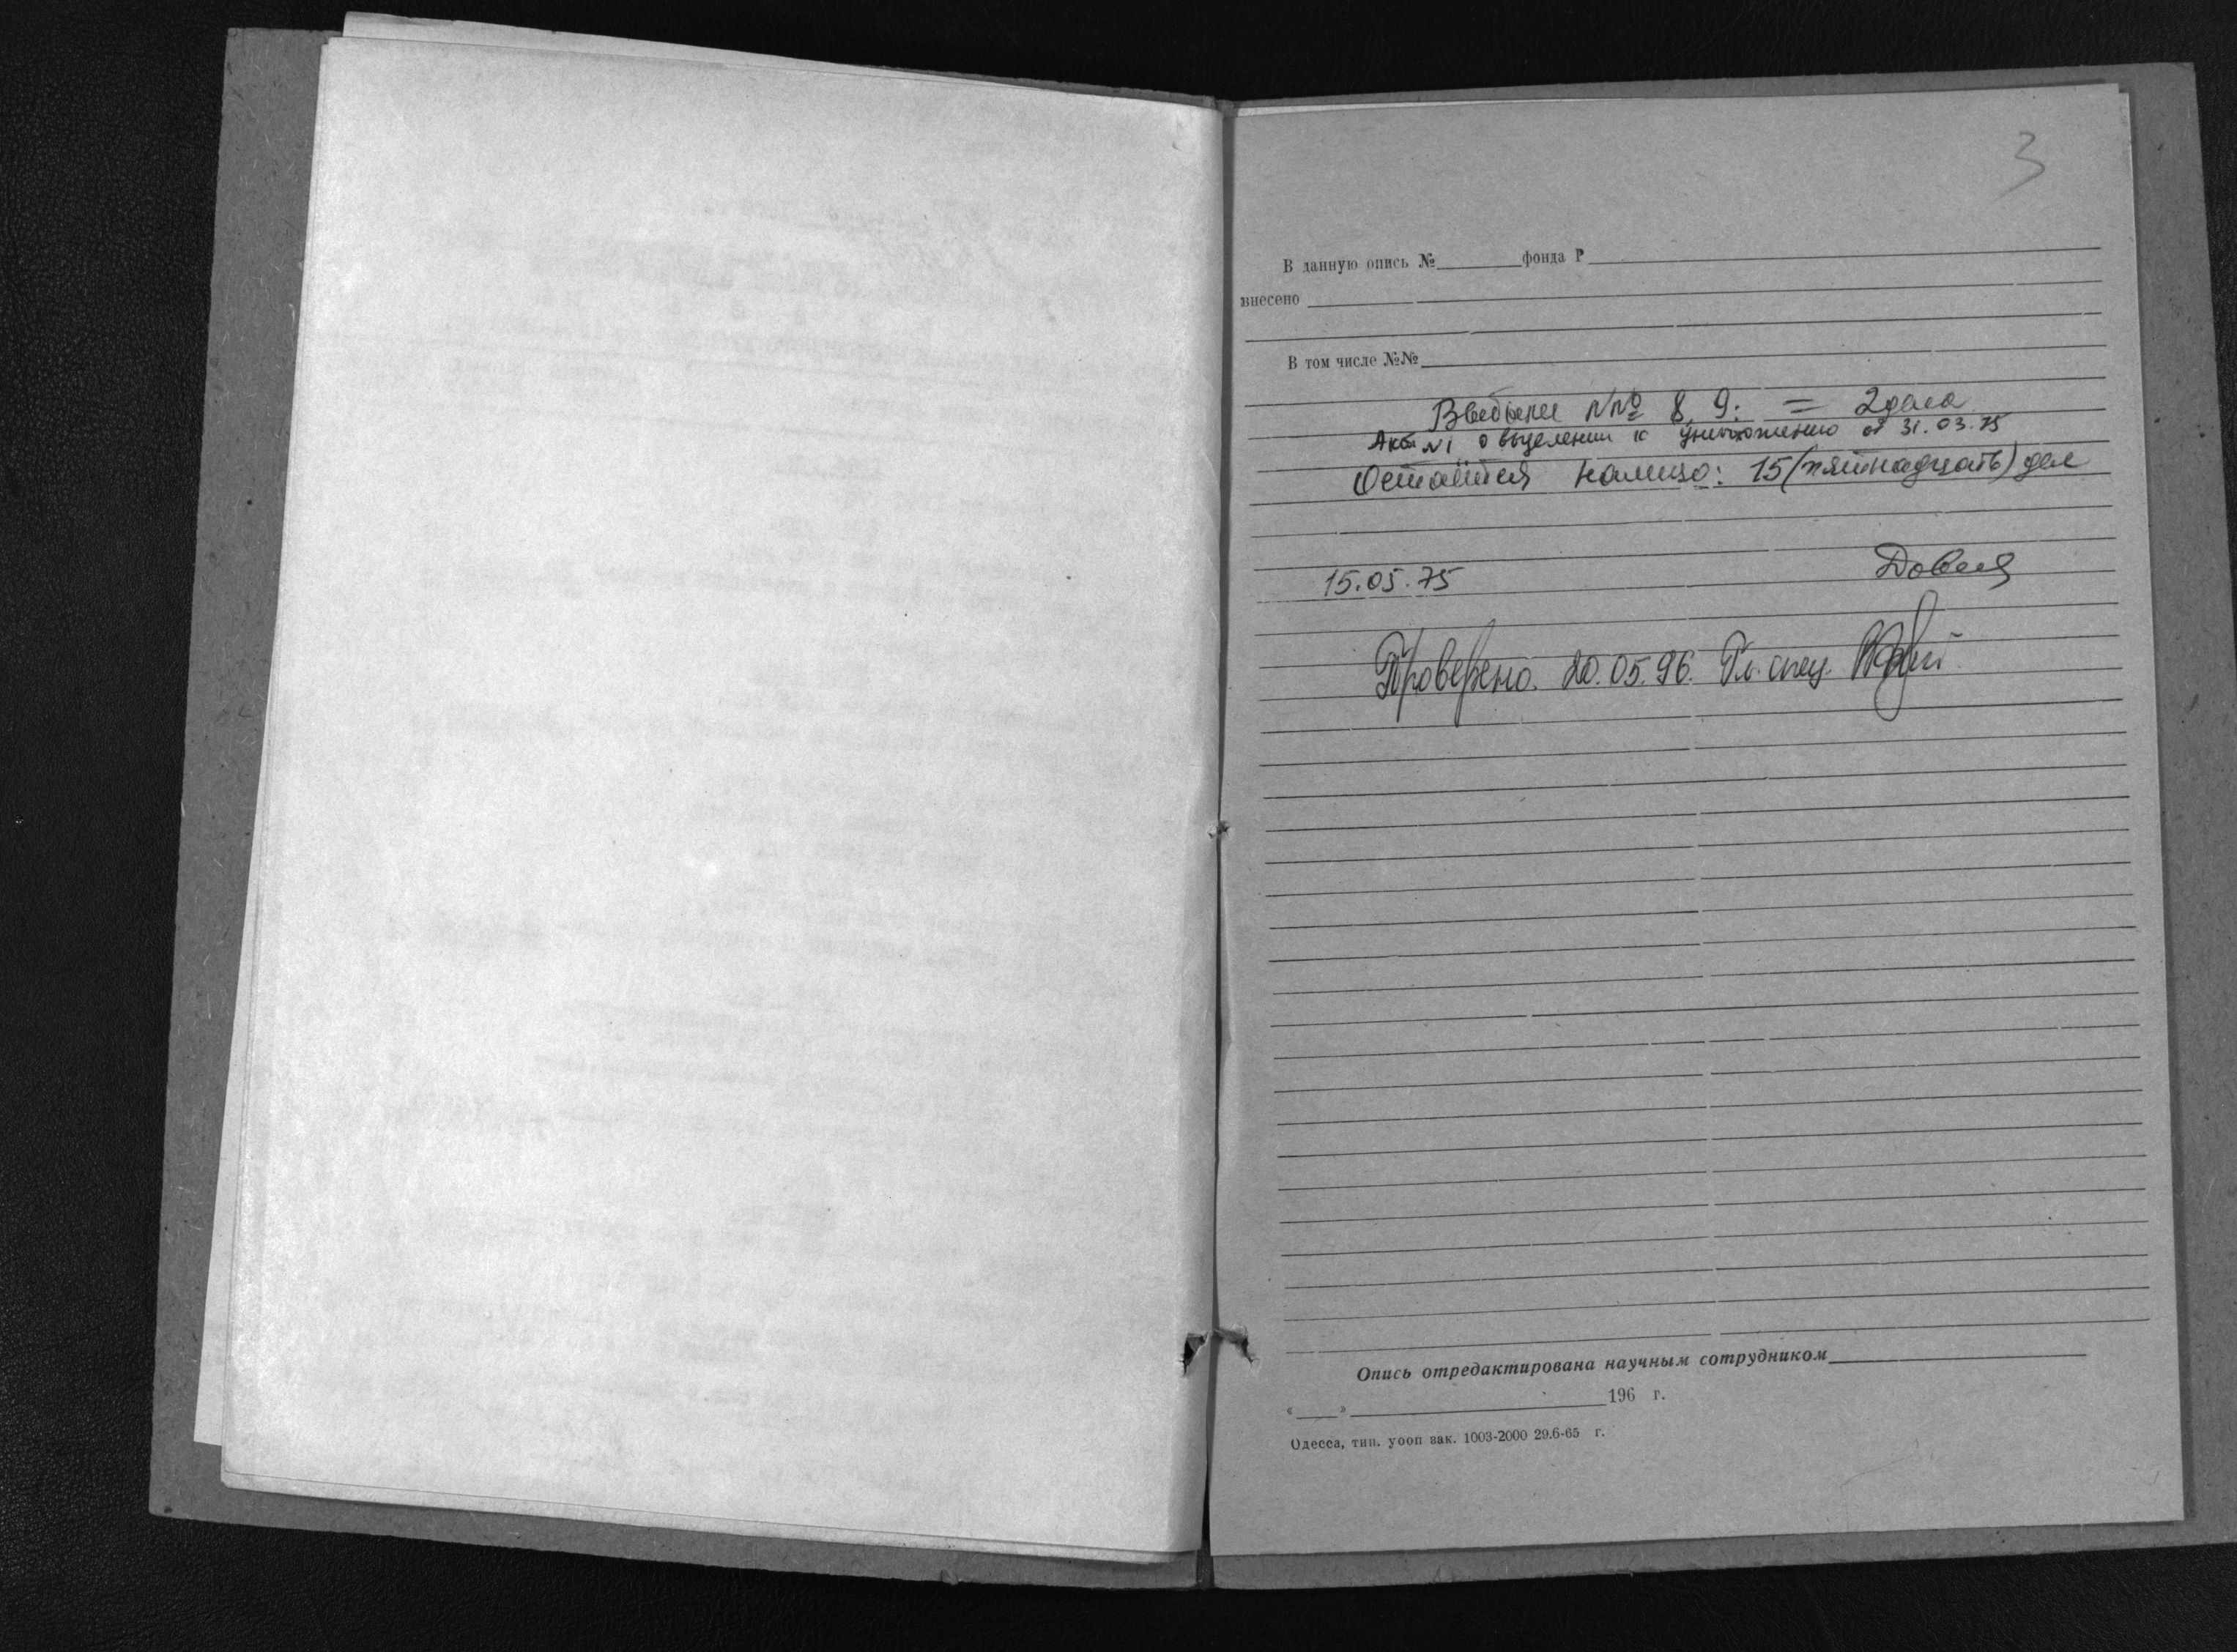 3
В данную опись № фонда Р
внесено
В том числе №№
Выбыли №№ 8, 9. = 2 дела
Акт №1 о выделении к уничтожению от 31.03.75
Остаётся налицо: 15 (пятнадцать) дел
15.05.75
Проверено. 20.05.96. Гл. спец.
Опись отредактирована научным сотрудником
« » 196 г.
Одесса, тип. уооп зак. 1003-2000 29.6-65 г.